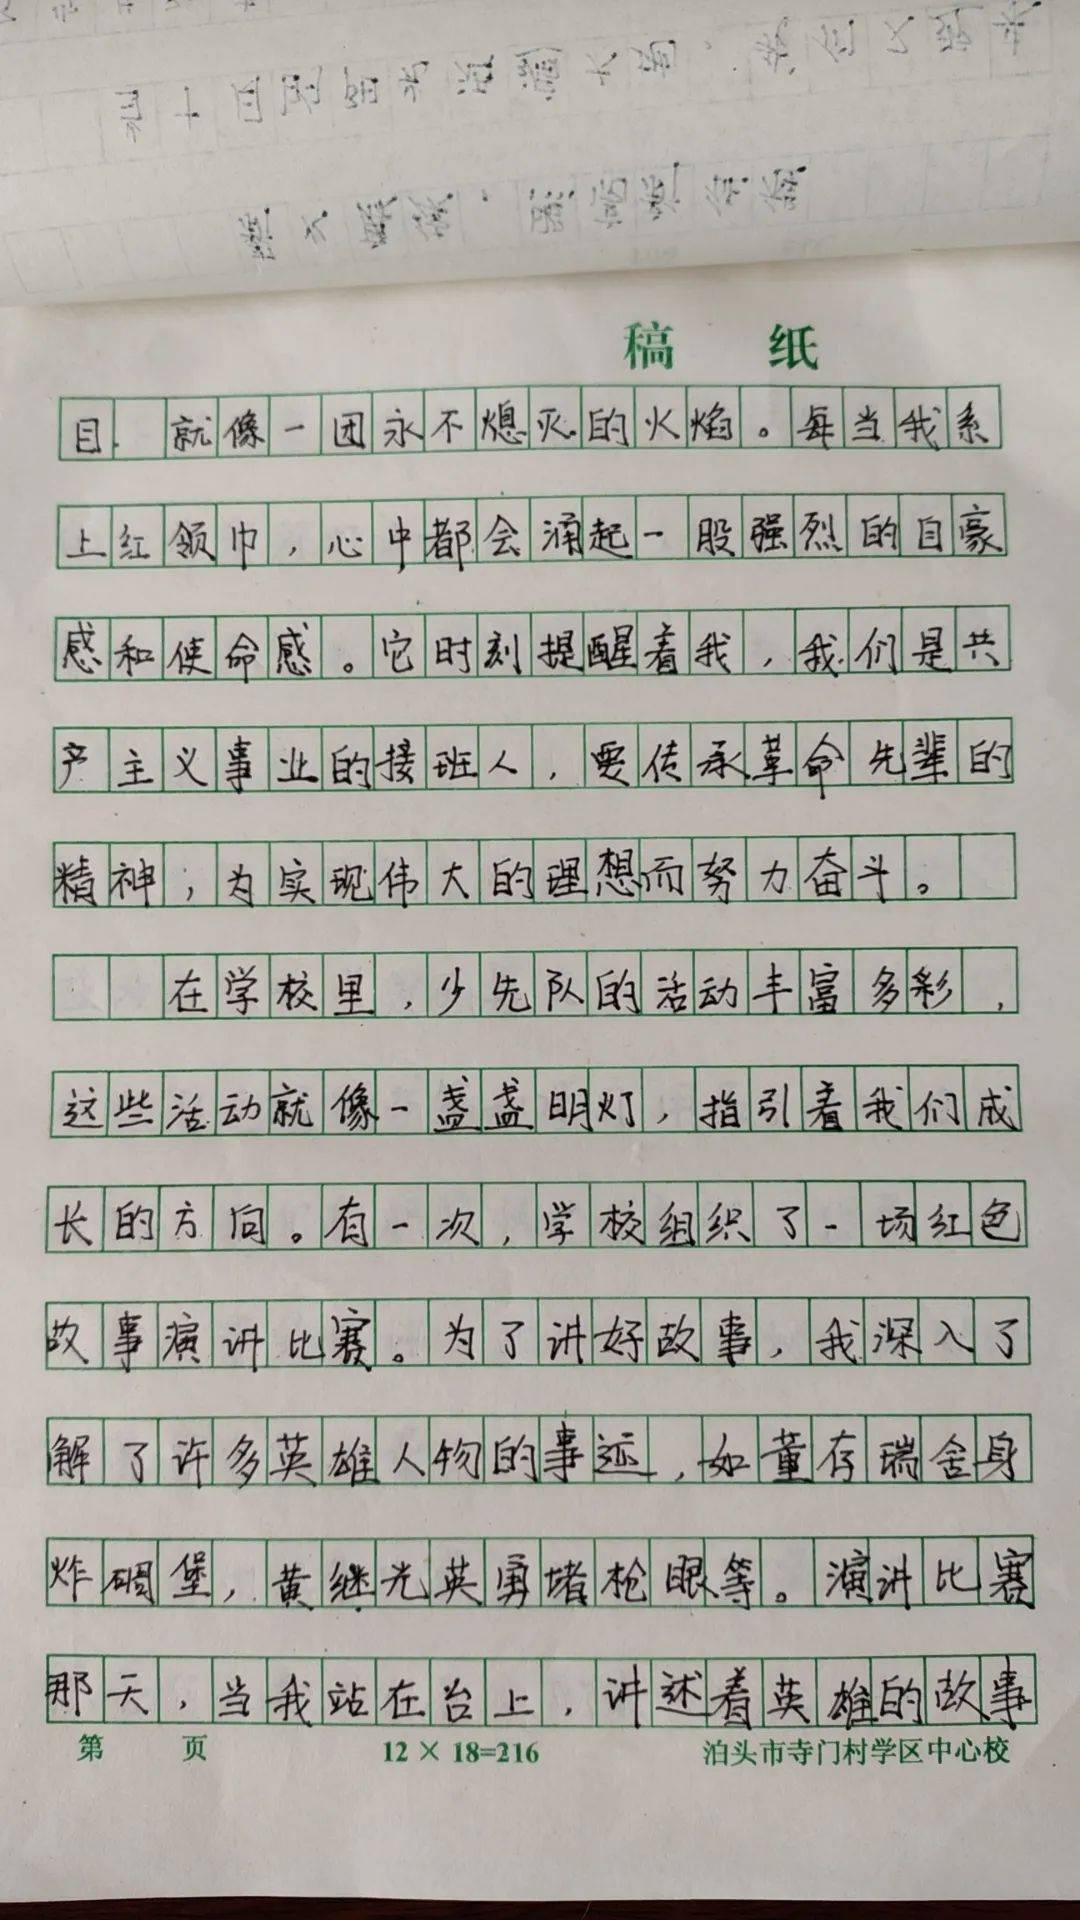 稿 纸
目，就像一团永不熄灭的火焰。每当我系
上红领巾，心中都会涌起一股强烈的自豪
感和使命感。它时刻提醒着我，我们是共
产主义事业的接班人，要传承革命先辈的
精神，为实现伟大的理想而努力奋斗。
在学校里，少先队的活动丰富多彩，
这些活动就像一盏盏明灯，指引着我们成
长的方向。有一次，学校组织了一场红色
故事演讲比赛。为了讲好故事，我深入了
解了许多英雄人物的事迹，如董存瑞舍身
炸碉堡，黄继光英勇堵枪眼等。演讲比赛
那天，当我站在台上，讲述着英雄的故事
第 页 12×18=216 泊头市寺门村学区中心校